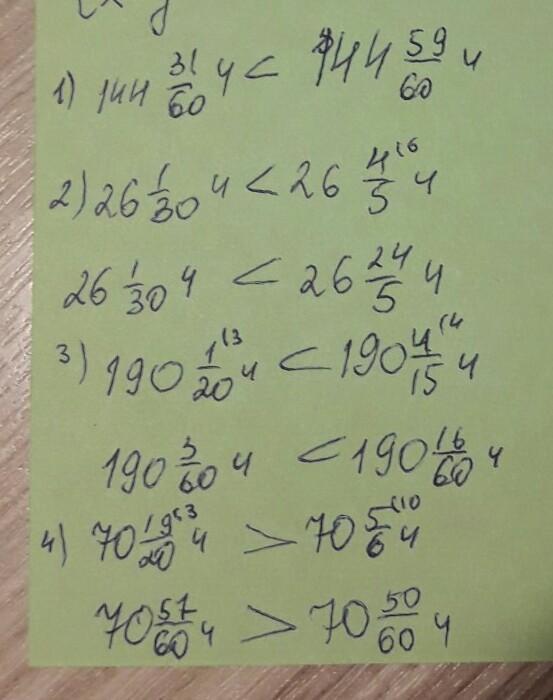 1) 144 31/60 ч < 144 59/60 ч
2) 26 1/30 ч < 26 4/5 (6 ч
26 1/30 ч < 26 24/5 ч
3) 190 1/20 (3 ч < 190 4/15 (4 ч
190 3/60 ч < 190 16/60 ч
4) 70 19/20 (3 ч > 70 5/6 (10 ч
70 57/60 ч > 70 50/60 ч